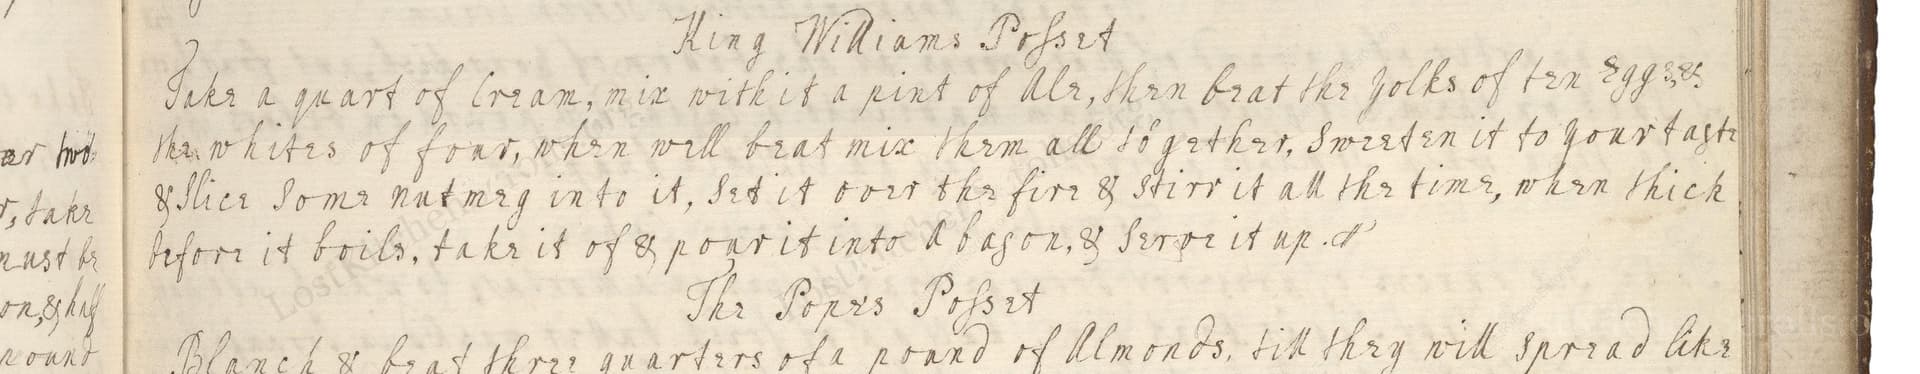 King Williams Posset
Take a quart of Cream, mix with it a pint of Ale, then beat the yolks of ten Eggs, &
the whites of four, when well beat mix them all together, sweeten it to your taste
& slice some nutmeg into it, set it over the fire & stirr it all the time, when thick
before it boils, take it of & pour it into a bason, & serve it up.
The Popes Posset
Blanch & beat three quarters of a pound of Almonds, till they will spread like
two
r, take
must be
on, & half
pound